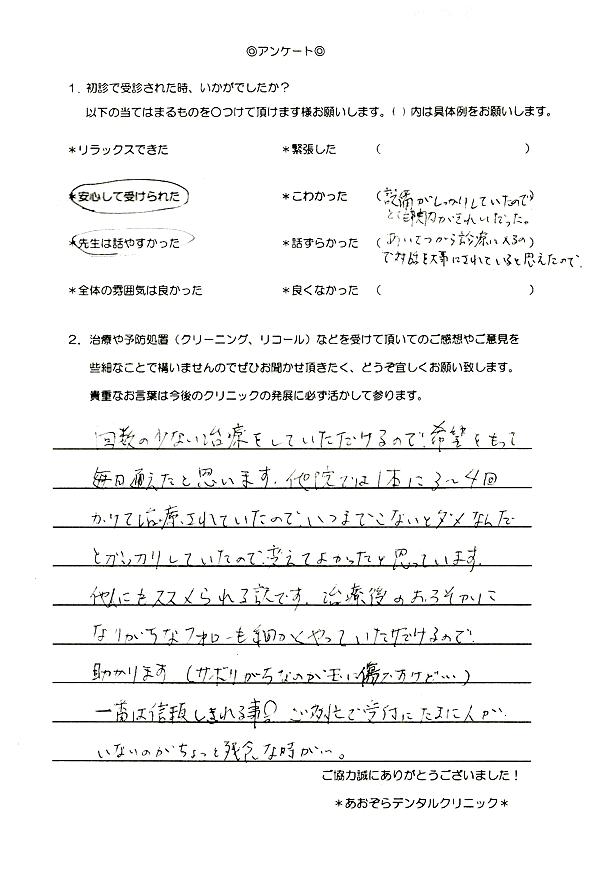 ◎アンケート◎
1．初診で受診された時、いかがでしたか？
以下の当てはまるものを○つけて頂けます様お願いします。（ ）内は具体例をお願いします。
＊リラックスできた ＊緊張した （ ）
＊安心して受けられた ＊こわかった （設備がしっかりしていたので）
と 院内がきれいだった。
＊先生は話やすかった ＊話ずらかった （あいさつから診療に入るの）
で対話を大事にされていると思えたので。
＊全体の雰囲気は良かった ＊良くなかった （ ）
2．治療や予防処置（クリーニング、リコール）などを受けて頂いてのご感想やご意見を
些細なことで構いませんのでぜひお聞かせ頂きたく、どうぞ宜しくお願い致します。
貴重なお言葉は今後のクリニックの発展に必ず活かして参ります。
回数の少ない治療をしていただけるので、希望をもって
毎日通えたと思います。他院では1本に3〜4回
かけて治療されていたので、いつまでこないとダメなんだ
とがっかりしていたので、変えてよかったと思っています。
他人にもススメられる説です。治療後のおろそかに
なりがちなフォローも細かくやっていただけるので
助かります（サボりがちなのが玉に傷ですけど…）
一番は信頼しきれる事。ご多忙で受付にたまに人が
いないのがちょっと残念な時が…。
ご協力誠にありがとうございました！
＊あおぞらデンタルクリニック＊